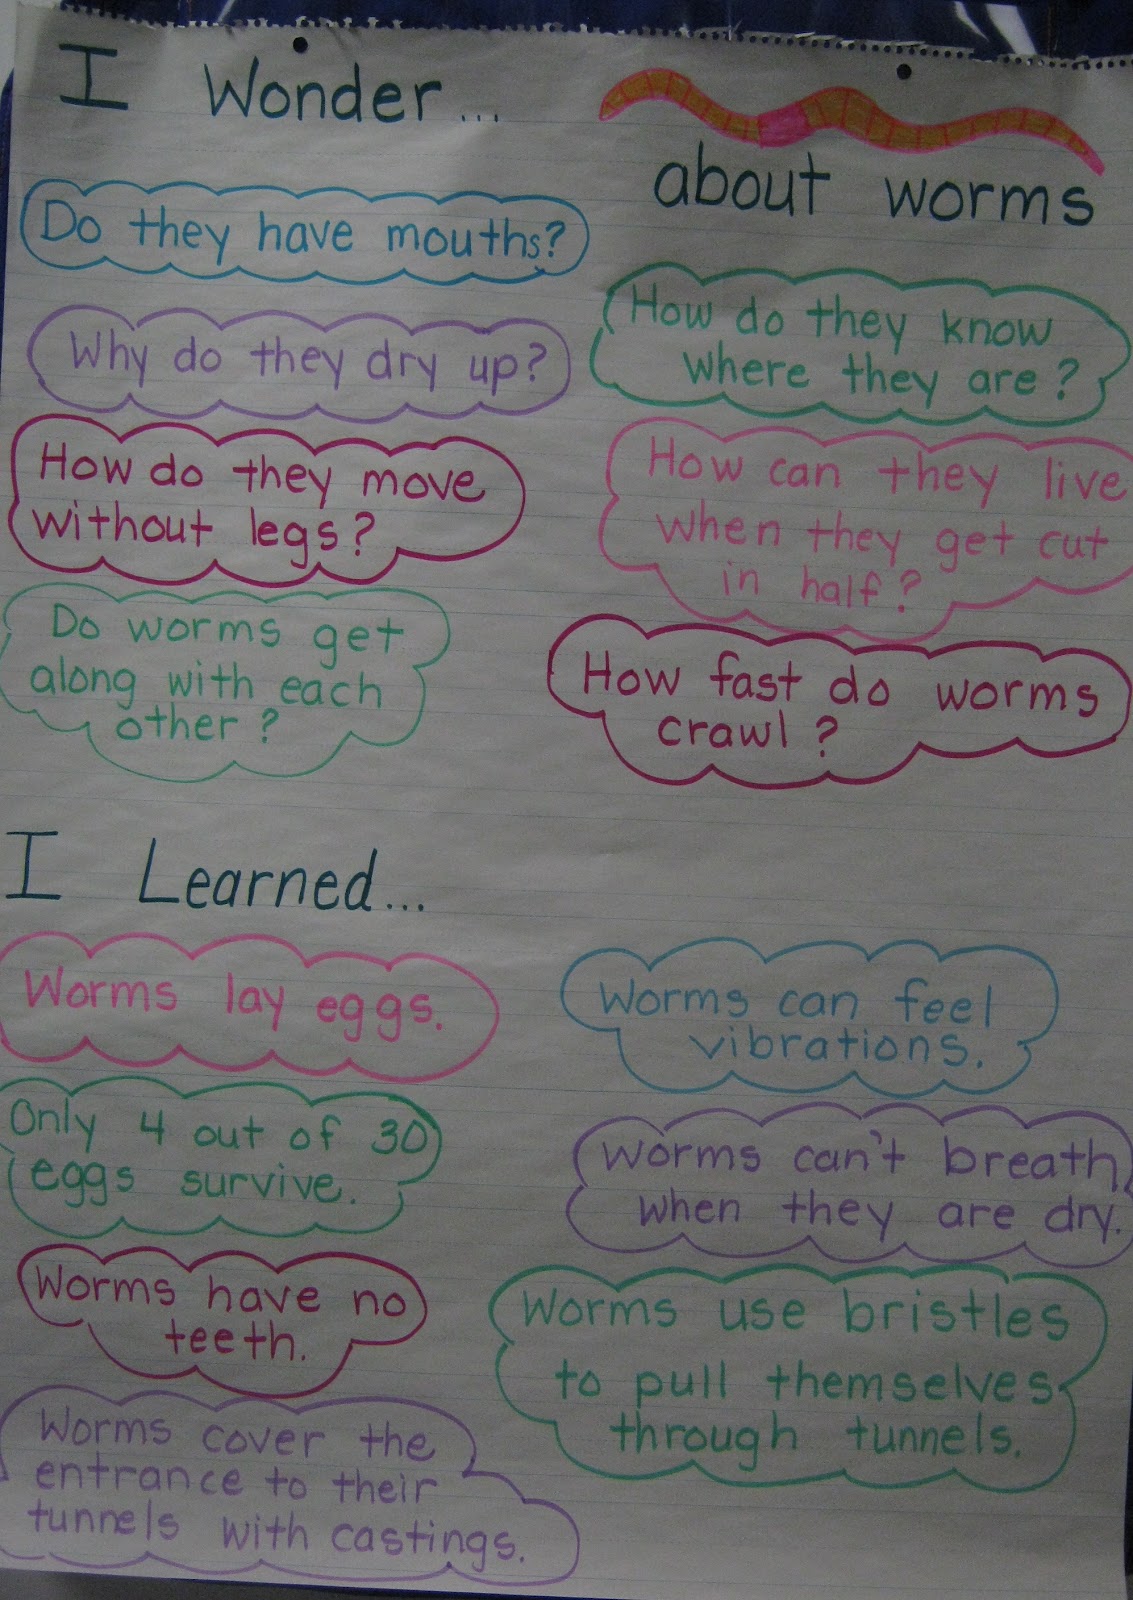 I Wonder...
about worms
Do they have mouths?
Why do they dry up?
How do they move
without legs?
Do worms get
along with each
other?
How do they know
where they are?
How can they live
when they get cut
in half?
How fast do worms
crawl?
I Learned...
Worms lay eggs.
Only 4 out of 30
eggs survive.
Worms have no
teeth.
Worms cover the
entrance to their
tunnels with castings.
Worms can feel
vibrations.
Worms can't breath
when they are dry.
Worms use bristles
to pull themselves
through tunnels.